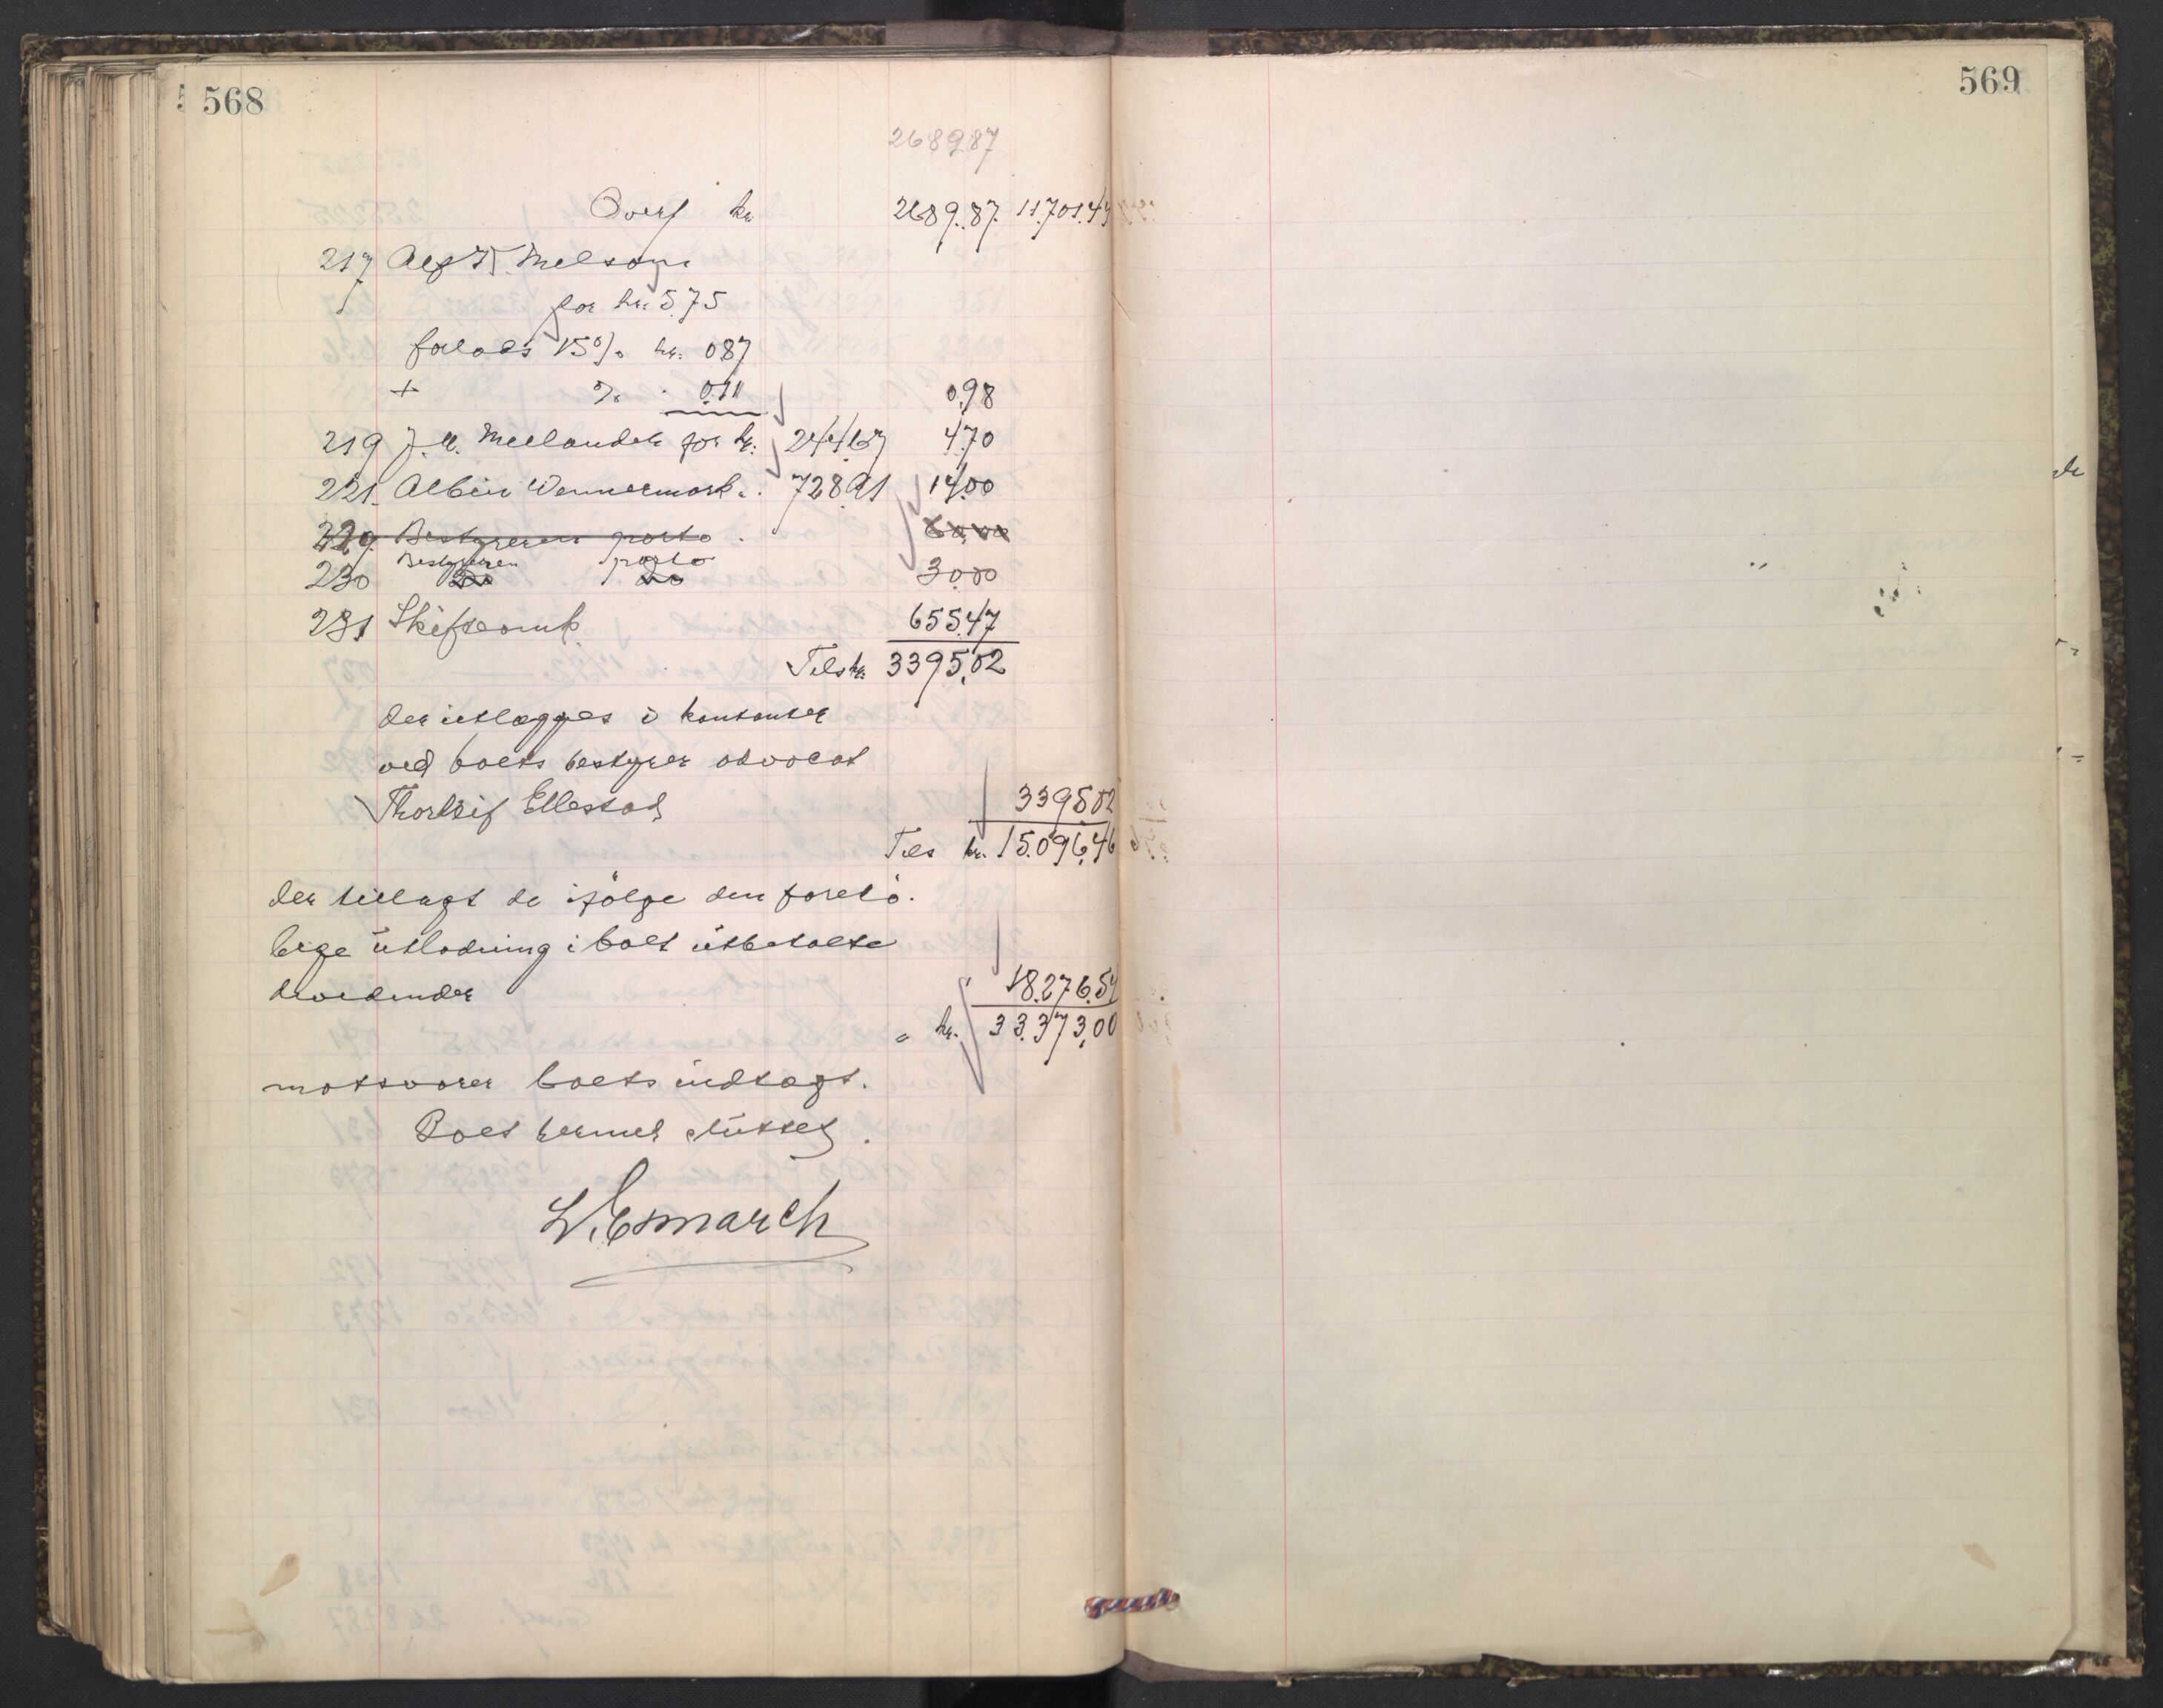 568
569
268987
Overf kr 2689.87. 11.701.44
217 Aug T. Melsom
for kr. 5.75
forlods 15% kr. 087
+ % · 0.11 0.98
219 J. A. Mellander for kr. 244.67 4.70
221. Albin Wennermark. · 728.91 14.00
229. Bestyreren porto
230 Bestyreren porto 30.00
231 Skifteomk. 655.47
Tils kr. 3395,02
der utlægges i kontanter
ved boets bestyrer advocat
Thorleif Ellestad 3395.02
Tils kr. 15.096,46
der tillagt de ifølge den forelø-
bige utlodning i boet utbetalte
dividender 18.276.54
= kr. 33.373,00
motsvarer boets indtægt.
Boet hermed sluttet.
L. Esmarch